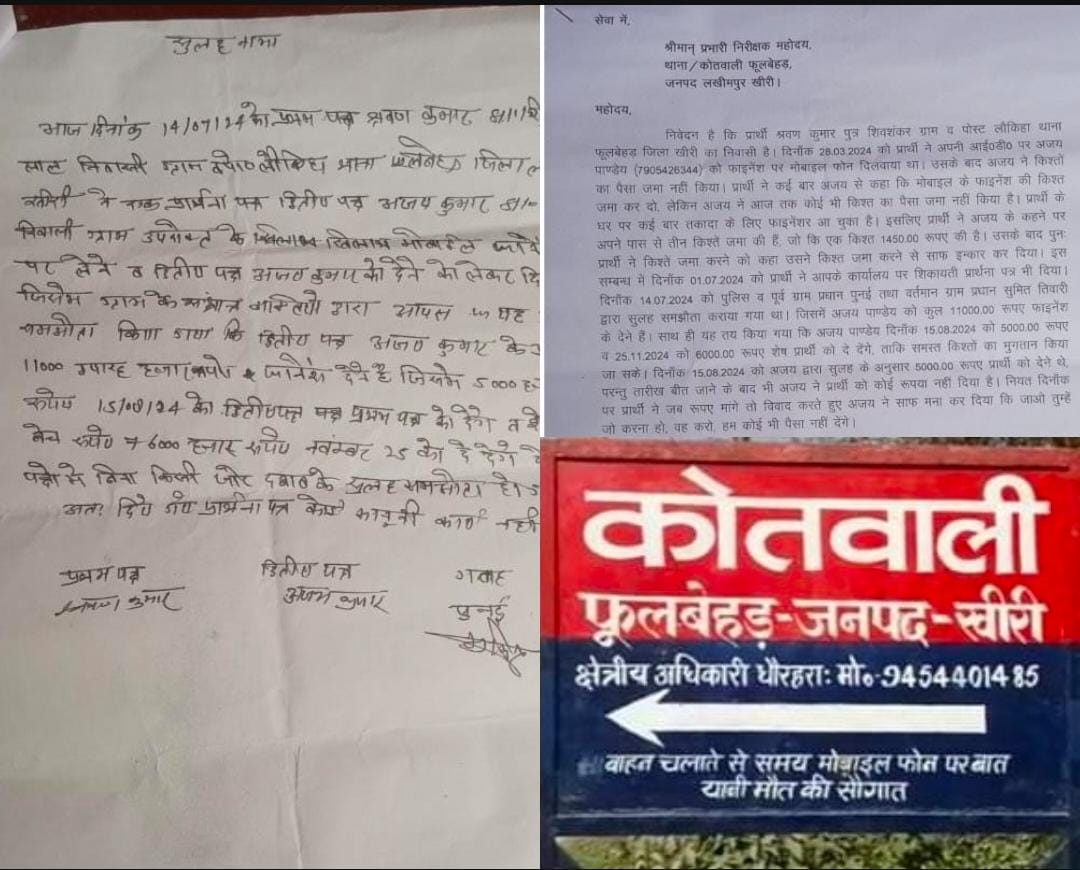 सुलह नामा
आज दिनांक 14/07/24 को प्रथम पक्ष श्रवण कुमार S/0 शि
लाल निवासी ग्राम व पो0 लौकिहा थाना फूलबेहड़ जिला ल
खीरी ने एक प्रार्थना पत्र द्वितीय पक्ष अजय कुमार S/0
निवासी ग्राम उपरोक्त के खिलाफ मोबाईल
पर लेने व द्वितीय पक्ष अजय कुमार को देने को लेकर दि
जिसमें ग्राम के संभ्रान्त व्यक्तियो द्वारा आपस में यह
समझौता किया गया कि द्वितीय पक्ष अजय कुमार के
11000 ग्यारह हजार रूपये देने है जिसमे 5000 ह
रूपये 15/08/24 को द्वितीय पक्ष प्रथम पक्ष को देंगे
रूपये 6000 हजार रूपये नवम्बर 25 को दे देंगे
पक्षो मे बिना किसी जोर दबाव के सुलह समझौता है।
अतः दिये गये प्रार्थना पत्र कोई कानूनी कार्य नही
प्रथम पक्ष द्वितीय पक्ष गवाह
श्रवण कुमार अजय कुमार पुनई
सेवा में,
श्रीमान् प्रभारी निरीक्षक महोदय,
थाना/कोतवाली फूलबेहड़,
जनपद लखीमपुर खीरी।
महोदय,
निवेदन है कि प्रार्थी श्रवण कुमार पुत्र शिवशंकर ग्राम व पोस्ट लौकिहा थाना
फूलबेहड़ जिला खीरी का निवासी है। दिनाँक 28.03.2024 को प्रार्थी ने अपनी आई०डी० पर अजय
पाण्डेय (7905426344) को फाइनेंश पर मोबाइल फोन दिलवाया था। उसके बाद अजय ने किश्तों
का पैसा जमा नहीं किया। प्रार्थी ने कई बार अजय से कहा कि मोबाइल के फाइनेंश की किश्त
जमा कर दो, लेकिन अजय ने आज तक कोई भी किश्त का पैसा जमा नहीं किया है। प्रार्थी के
घर पर कई बार तकादा के लिए फाइनेंशर आ चुका है। इसलिए प्रार्थी ने अजय के कहने पर
अपने पास से तीन किश्तें जमा की हैं, जो कि एक किश्त 1450.00 रूपए की है। उसके बाद पुनः
प्रार्थी ने किश्ते जमा करने को कहा उसने किश्त जमा करने से साफ इन्कार कर दिया। इस
सम्बन्ध में दिनाँक 01.07.2024 को प्रार्थी ने आपके कार्यालय पर शिकायती प्रार्थना पत्र भी दिया।
दिनाँक 14.07.2024 को पुलिस व पूर्व ग्राम प्रधान पुनई तथा वर्तमान ग्राम प्रधान सुमित तिवारी
द्वारा सुलह समझौता कराया गया था। जिसमें अजय पाण्डेय को कुल 11000.00 रूपए फाइनेंश
के देने हैं। साथ ही यह तय किया गया कि अजय पाण्डेय दिनाँक 15.08.2024 को 5000.00 रूपए
व 25.11.2024 को 6000.00 रूपए शेष प्रार्थी को दे देंगे, ताकि समस्त किश्तों का भुगतान किया
जा सके। दिनाँक 15.08.2024 को अजय द्वारा सुलह के अनुसार 5000.00 रूपए प्रार्थी को देने थे,
परन्तु तारीख बीत जाने के बाद भी अजय ने प्रार्थी को कोई रूपया नहीं दिया है। नियत दिनाँक
पर प्रार्थी ने जब रूपए मांगे तो विवाद करते हुए अजय ने साफ मना कर दिया कि जाओ तुम्हें
जो करना हो, वह करो, हम कोई भी पैसा नहीं देंगे।
कोतवाली
फूलबेहड़-जनपद-खीरी
क्षेत्रीय अधिकारी धौरहराः मो०-9454401485
वाहन चलाते से समय मोबाइल फोन पर बात
यानी मौत की सौगात